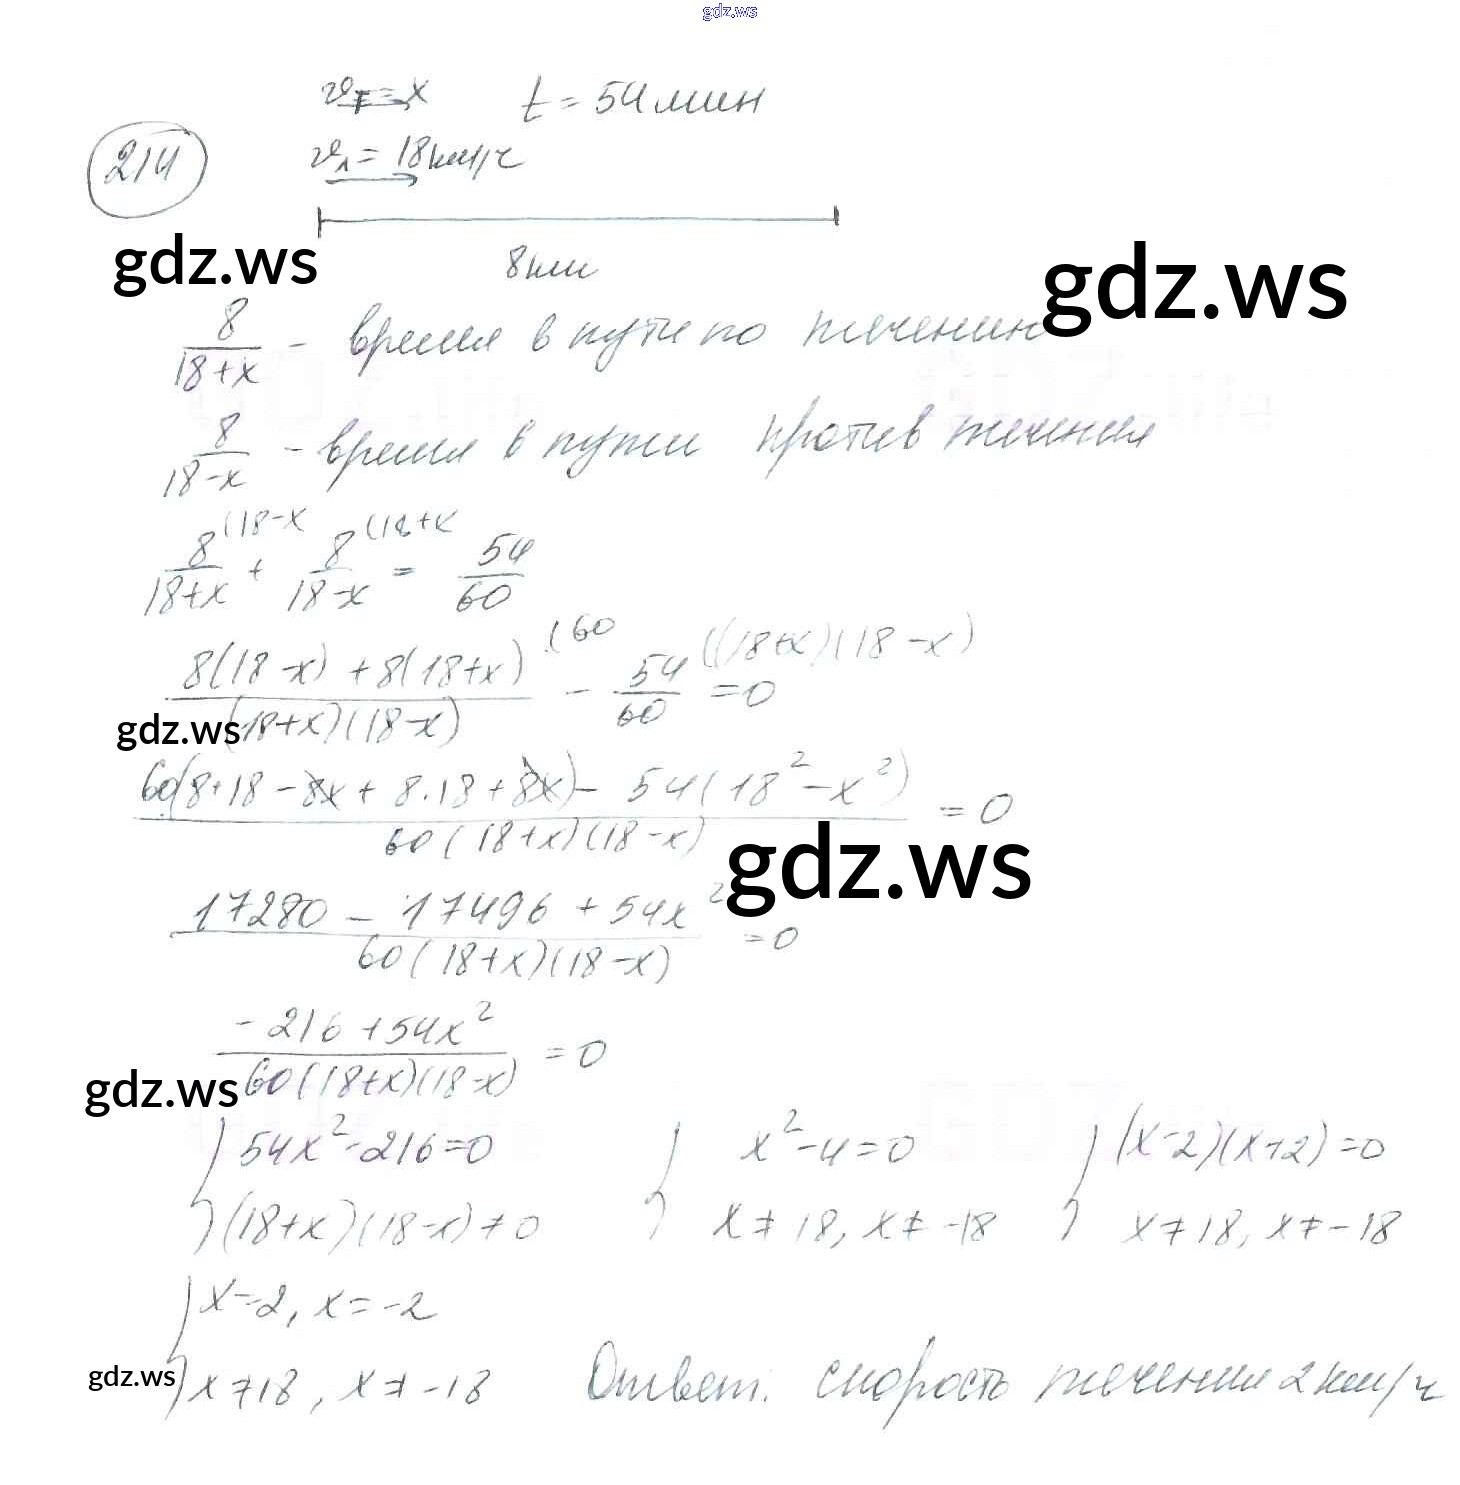 gdz.ws
vт = x t = 54 мин
214
v1 = 18 км/ч
gdz.ws
8 км
gdz.ws
8/(18+x) - время в пути по течению
8/(18-x) - время в пути против течения
8/(18+x) (18-x + 8/(18-x) (18+x = 54/60
(8(18-x) + 8(18+x))/((18+x)(18-x)) (60 - 54/60 ((18+x)(18-x) = 0
gdz.ws
(60(8·18 - 8x + 8·18 + 8x) - 54(18² - x²))/(60(18+x)(18-x)) = 0
gdz.ws
(17280 - 17496 + 54x²)/(60(18+x)(18-x)) = 0
(-216 + 54x²)/(60(18+x)(18-x)) = 0
gdz.ws
{ 54x² - 216 = 0 { x² - 4 = 0 { (x-2)(x+2) = 0
(18+x)(18-x) ≠ 0 x ≠ 18, x ≠ -18 x ≠ 18, x ≠ -18
{ x = 2, x = -2
gdz.ws
x ≠ 18, x ≠ -18 Ответ: скорость течения 2 км/ч